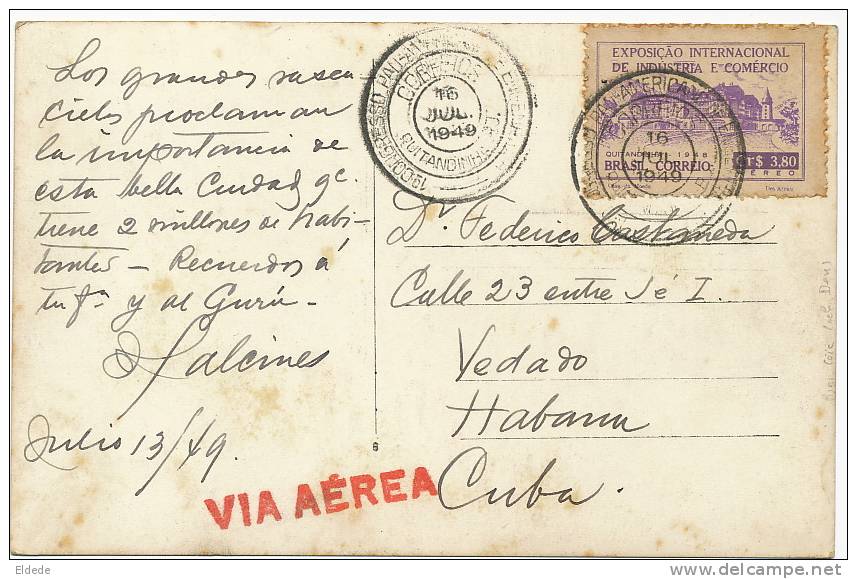 Los grandes rasca
cielos proclaman
la importancia de
esta bella Ciudad qe.
tiene 2 millones de habi-
tantes - Recuerdos á
tu fa. y al Gurú-
Salcines
Julio 13/49.
VIA AÉREA
CORREIOS
16
JUL.
1949
QUITANDINHA
EXPOSIÇÃO INTERNACIONAL
DE INDÚSTRIA E COMÉRCIO
QUITANDINHA 1948
BRASIL CORREIO
CR$ 3,80
AÉREO
16
JUL
1949
Dr. Federico Castañeda
Calle 23 entre J é I.
Vedado
Habana
Cuba.
6
Eldede
delcampe.net